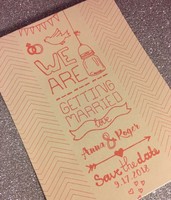 WE
ARE
GETTING
MARRIED
Anna & Roger
Save the date
9.17.2018